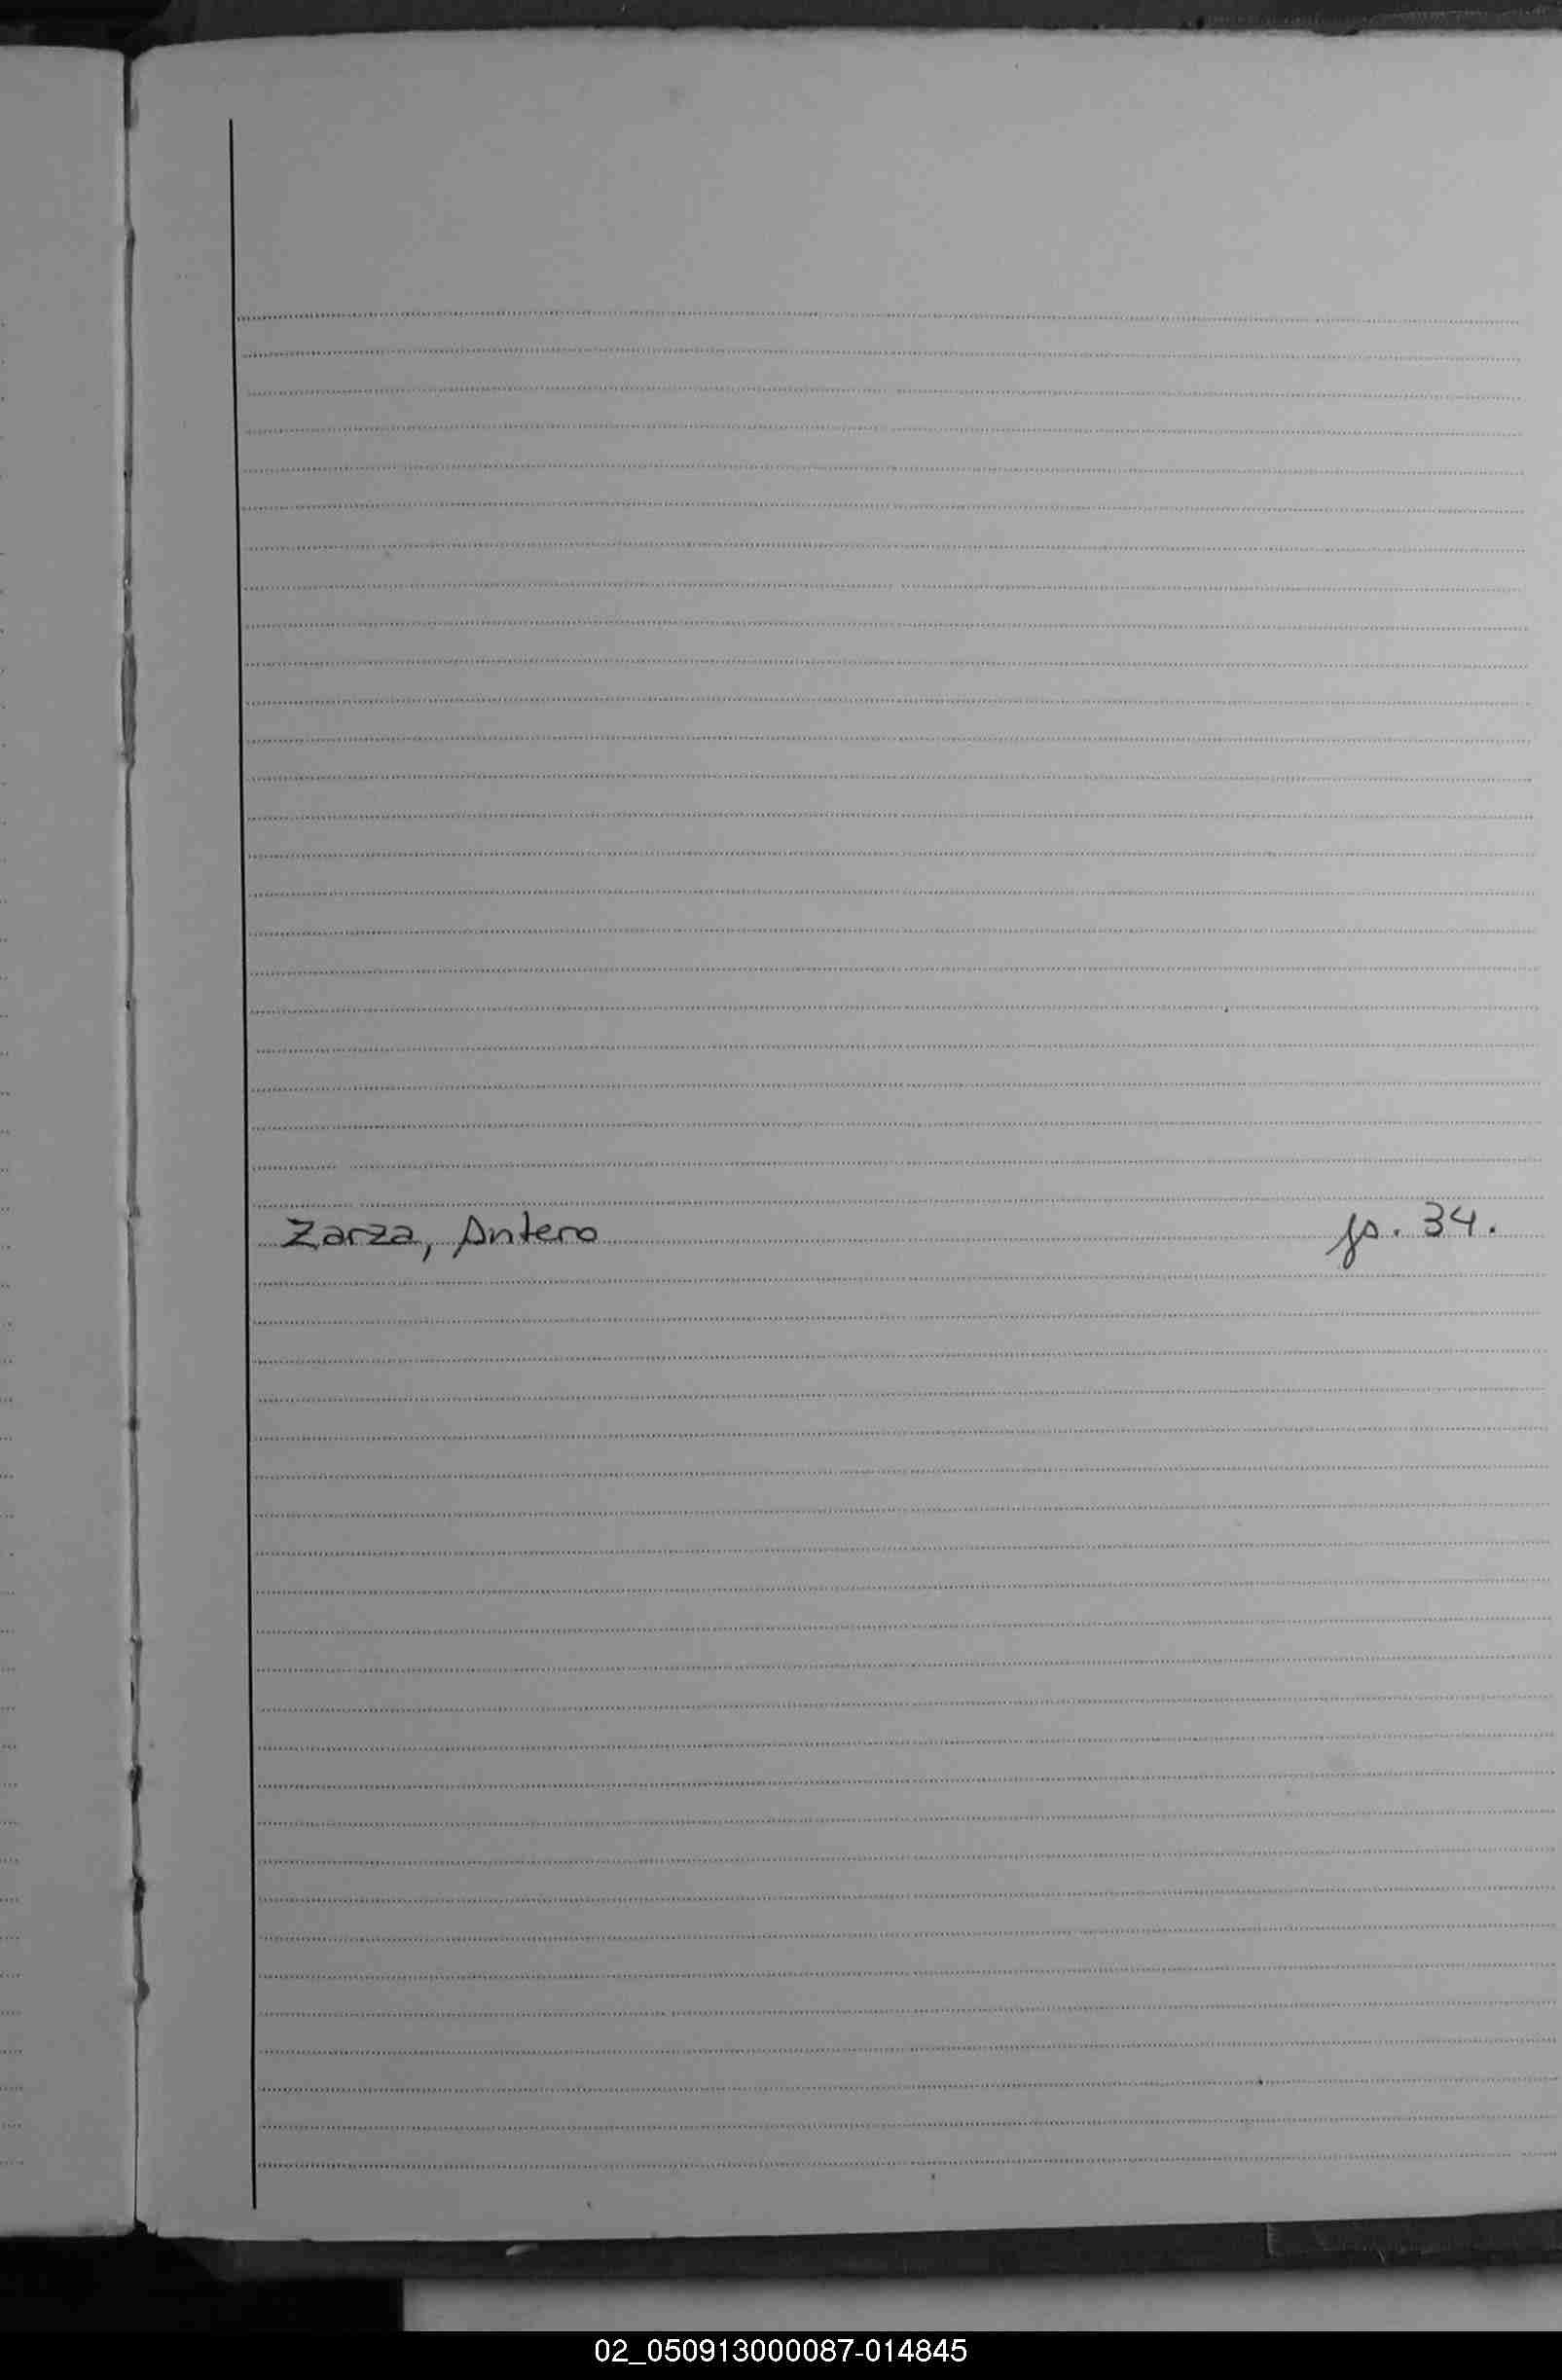 Zarza, Antero fs. 34.
02_050913000087-014845